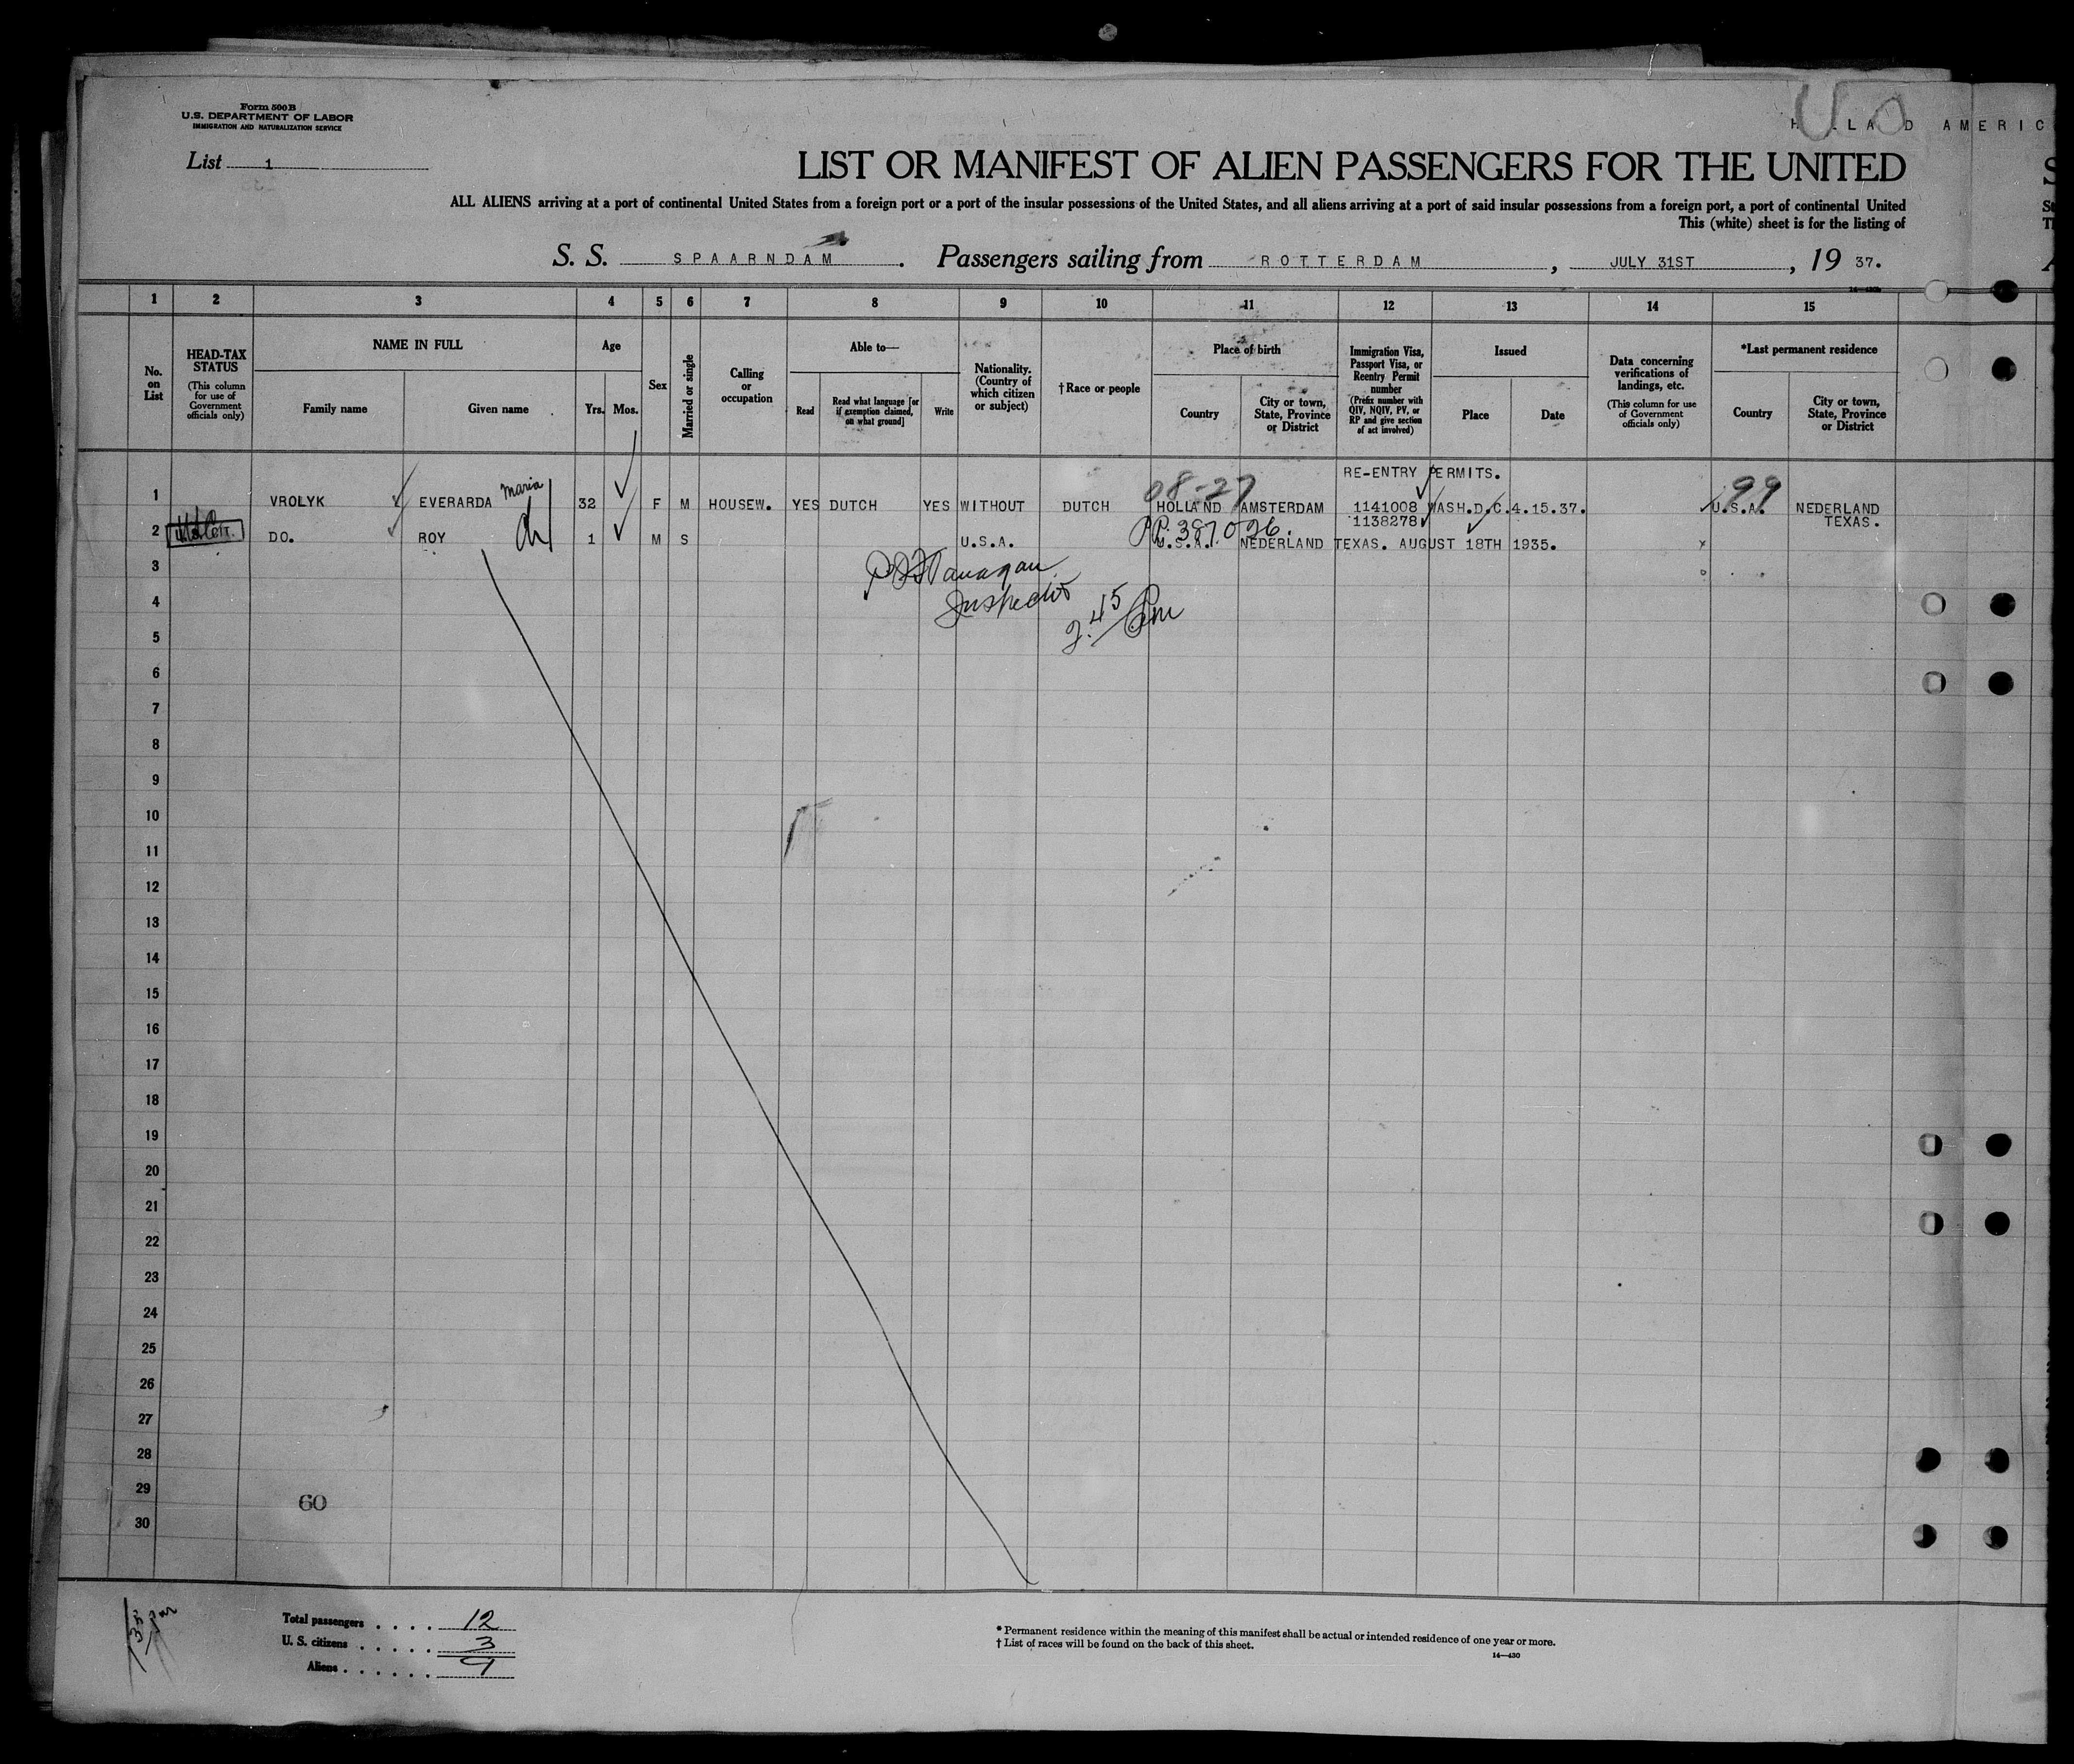 Form 500 B
U.S. DEPARTMENT OF LABOR
IMMIGRATION AND NATURALIZATION SERVICE
List 1
LIST OR MANIFEST OF ALIEN PASSENGERS FOR THE UNITED
ALL ALIENS arriving at a port of continental United States from a foreign port or a port of the insular possessions of the United States, and all aliens arriving at a port of said insular possessions from a foreign port, a port of continental United
This (white) sheet is for the listing of
S. S. SPAARNDAM. Passengers sailing from ROTTERDAM, JULY 31ST, 19 37.
1 2 3 4 5 6 7 8 9 10 11 12 13 14 15
No. on List
HEAD-TAX STATUS
(This column for use of Government officials only)
NAME IN FULL
Family name Given name
Age
Yrs. Mos.
Sex
Married or single
Calling or occupation
Able to—
Read
Read what language [or if exemption claimed, on what ground]
Write
Nationality. (Country of which citizen or subject)
†Race or people
Place of birth
Country
City or town, State, Province or District
Immigration Visa, Passport Visa, or Reentry Permit number
(Prefix number with QIV, NQIV, PV, or RP and give section of act involved)
Issued
Place Date
Data concerning verifications of landings, etc.
(This column for use of Government officials only)
*Last permanent residence
Country
City or town, State, Province or District
RE-ENTRY PERMITS.
08-27 99
1 VROLYK EVERARDA Maria 32 F M HOUSEW. YES DUTCH YES WITHOUT DUTCH HOLLAND AMSTERDAM 1141008 WASH.D.C. 4.15.37. U.S.A. NEDERLAND
1138278 TEXAS.
PP. 387026.
2 DO. ROY 1 M S U.S.A. U.S.A. NEDERLAND TEXAS. AUGUST 18TH 1935.
3
Inspector
4
2.45 Pm
5
6
7
8
9
10
11
12
13
14
15
16
17
18
19
20
21
22
23
24
25
26
27
28
29
60
30
Total passengers . . . . 12
U. S. citizens . . . . . 3
Aliens . . . . . . 9
* Permanent residence within the meaning of this manifest shall be actual or intended residence of one year or more.
† List of races will be found on the back of this sheet.
14—430